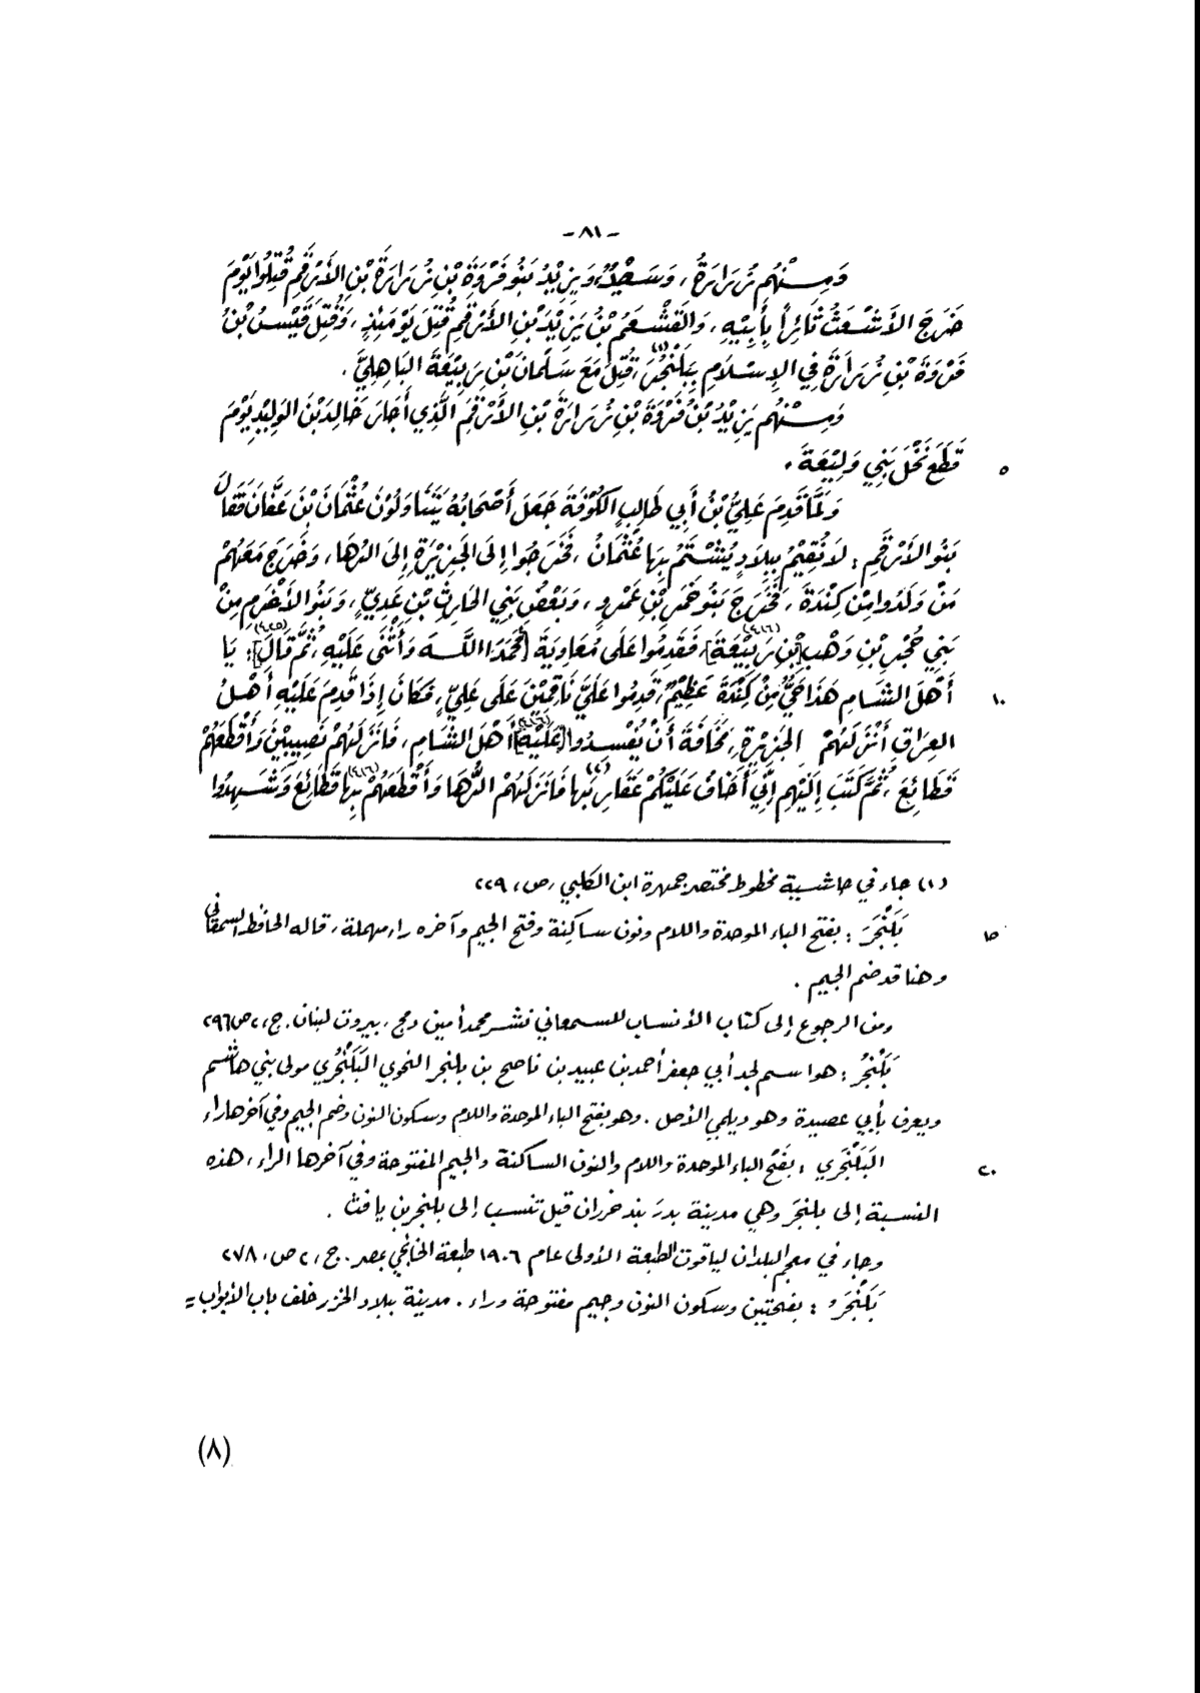 - ٨١ -
وَمِنْهُم زُرَارَةُ، وَسَعْيْدٌ، وَيَزِيْدُ بَنُو فَرْوَةَ بْنِ زُرَارَةَ بْنِ الأَرْقَمِ قُتِلُوا يَوْمَ
خَرَجَ الأَشْعَثُ ثَائِراً بِأَبِيْهِ، وَالقَشْعَمُ بْنُ يَزِيْدَ بْنِ الأَرْقَمِ قُتِلَ يَوْمَئِذٍ، وَقُتِلَ قَيْسُ بْنُ
فَرْوَةَ بْنِ زُرَارَةَ فِي الإِسْلَامِ بِبَلَنْجُرَ(١)، قُتِلَ مَعَ سَلْمَانَ بْنِ رَبِيْعَةَ البَاهِلِيَّ.
وَمِنْهُم يَزِيْدُ بْنُ فَرْوَةَ بْنِ زُرَارَةَ بْنِ الأَرْقَمِ الَّذِي أَجَارَ خَالِدَ بْنَ الوَلِيْدِ يَوْمَ
٥ قَطَعَ نَخْلَ بَنِي وَلِيْعَةَ.
وَلَمَّا قَدِمَ عَلِيُّ بْنُ أَبِي طَالِبٍ الكُوْفَةَ جَعَلَ أَصْحَابُهُ يَتَنَاوَلُوْنَ عُثْمَانَ بْنَ عَفَّانَ فَقَالَ
بَنُو الأَرْقَمِ: لاَ نُقِيْمُ بِبِلاَدٍ يُشْتَمُ بِهَا عُثْمَانُ، فَخَرَجُوا إِلَى الجَزِيْرَةِ إِلَى الرُّهَا، وَخَرَجَ مَعَهُمْ
مَنْ وَلَدُوا مِنْ كِنْدَةَ، فَخَرَجَ بَنُو خَمَرِ بْنِ عَمْرٍو، وَبَعْضُ بَنِي الحَارِثِ بْنِ عَدِيٍّ، وَبَنُو الأَخْرَمِ مِنْ
بَنِي حُجْرِ بْنِ وَهْبِ [بْنِ رَبِيْعَةَ](٤١٦)، فَقَدِمُوا عَلَى مُعَاوِيَةَ [فَحَمَدَ اللَّهَ وَأَثْنَى عَلَيْهِ، ثُمَّ قَالَ](٤٢٥): يَا
١٠ أَهْلَ الشَامِ هَذَا حَيٌّ مِنْ كِنْدَةَ عَظِيْمٌ، قَدِمُوا عَلَيَّ نَاقِمِيْنَ عَلَى عَلِيٍّ، فَكَانَ إِذَا قَدِمَ عَلَيْهِ أَهْلُ
العِرَاقِ أَنْزَلَهُمْ الجَزِيْرَةَ، مَخَافَةَ أَنْ يُفْسِدُوا [عَلَيْهِ](٤١٦) أَهْلَ الشَامِ، فَأَنْزَلَهُمْ نَصِيبِيْنَ وَأَقْطَعَهُمْ
قَطَائِعَ، ثُمَّ كَتَبَ إِلَيْهِم إِنِّي أَخَافُ عَلَيْكُمْ عَقَارِبَهَا(٢) فَأَنْزَلَهُمْ الرُّهَا وَأَقْطَعَهُمْ بِهَا(٤١٦) قَطَائِعَ وَشَهِدُوا
(١) جاء في حاشية مخطوط مختصر جمهرة ابن الكلبي، ص، ٢٢٩
١٥ بَلَنْجَرَ: بفتح الباء الموحدة واللام ونون ساكنة وفتح الجيم وآخره راء مهملة، قاله الحافظ السمعاني
وهنا قد ضم الجيم.
ومن الرجوع إلى كتاب الأنساب للسمعاني نشر محمد أمين دمج، بيروت لبنان. ج، ٢ ص ٢٩٦
بَلَنْجُر: هو اسم لجد أبي جعفر أحمد بن عبيد بن ناصح بن بلنجر النحوي البَلَنْجُري مولى بني هاشم
ويعرف بأبي عصيدة وهو ديلمي الأصل. وهو بفتح الباء الموحدة واللام وسكون النون وضم الجيم وفي آخرها راء
٢٠ البَلَنْجَري: بفتح الباء الموحدة واللام والنون الساكنة والجيم المفتوحة وفي آخرها الراء، هذه
النسبة إلى بلنجَر وهي مدينة بدرَبند خزران قيل تنسب إلى بلنجر بن يافث.
وجاء في معجم البلدان لياقوت الطبعة الأولى عام ١٩٠٦ طبعة الخانجي بمصر. ج، ٢ ص، ٢٧٨
بَلَنْجَرُ: بفتحتين وسكون النون وجيم مفتوحة وراء. مدينة ببلاد الخزر خلف باب الأبواب =
(٨)